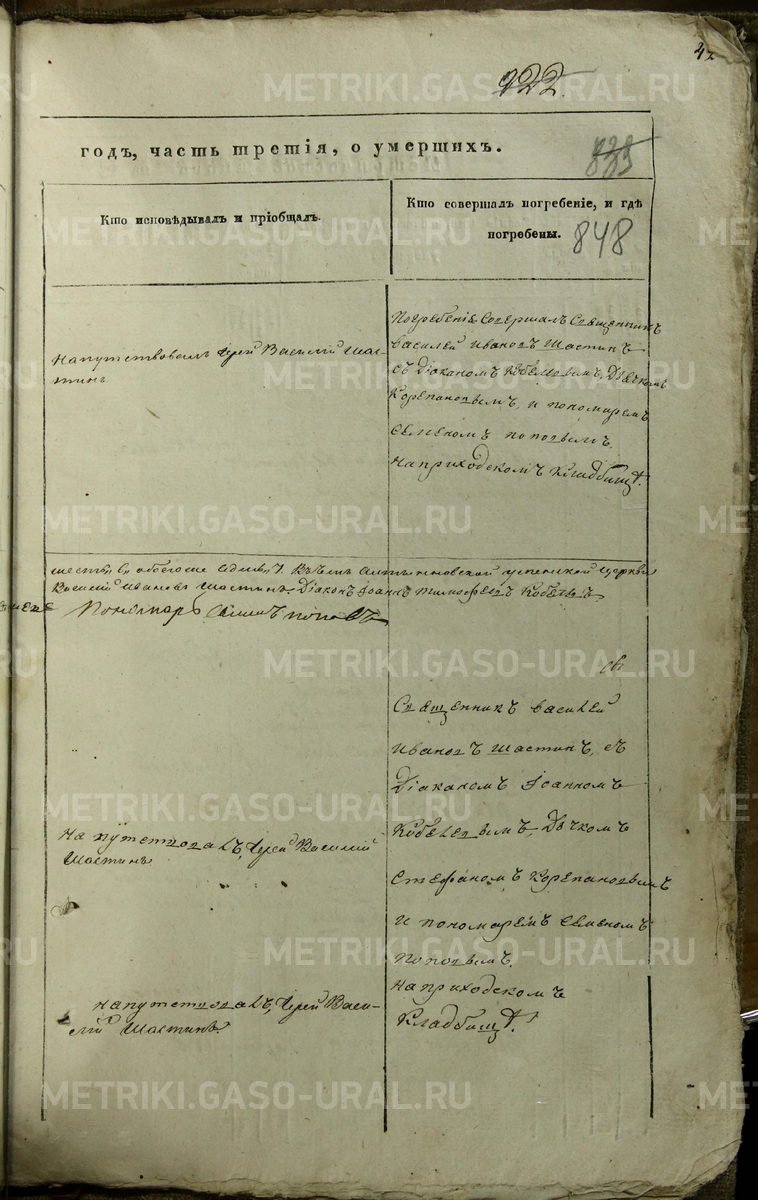 42
922
годъ, часть третія, о умершихъ.
839
Кто исповѣдывалъ и пріобщалъ.
Кто совершалъ погребеніе, и гдѣ
погребены.
848
Напутствовалъ Іерей Василій Шас-
тинъ
Погребеніе Совершалъ Священникъ
василей Ивановъ Шастинъ
съ Діаканомъ Кобелевымъ, Дьячкомъ
Корепановымъ, и пономаремъ
Семеномъ поповымъ.
на приходскомъ кладбищѣ.
успенской церкви
Василий Ивановъ Шастинъ. Діаконъ Іоаннъ Тимофеевъ Кобелевъ
Пономарь Семенъ поповъ
Священникъ василей
Ивановъ Шастинъ, съ
Діаканомъ Іоанномъ
Кобелевымъ, Дьячкомъ
Стефаномъ Корепановымъ
и пономаремъ Семеномъ
поповымъ.
на приходскомъ
Кладбищѣ.
Напутствовалъ, Іерей Василий
Шастинъ
напутствовалъ, Іерей Васи-
лій Шастинъ.
METRIKI.GASO-URAL.RU